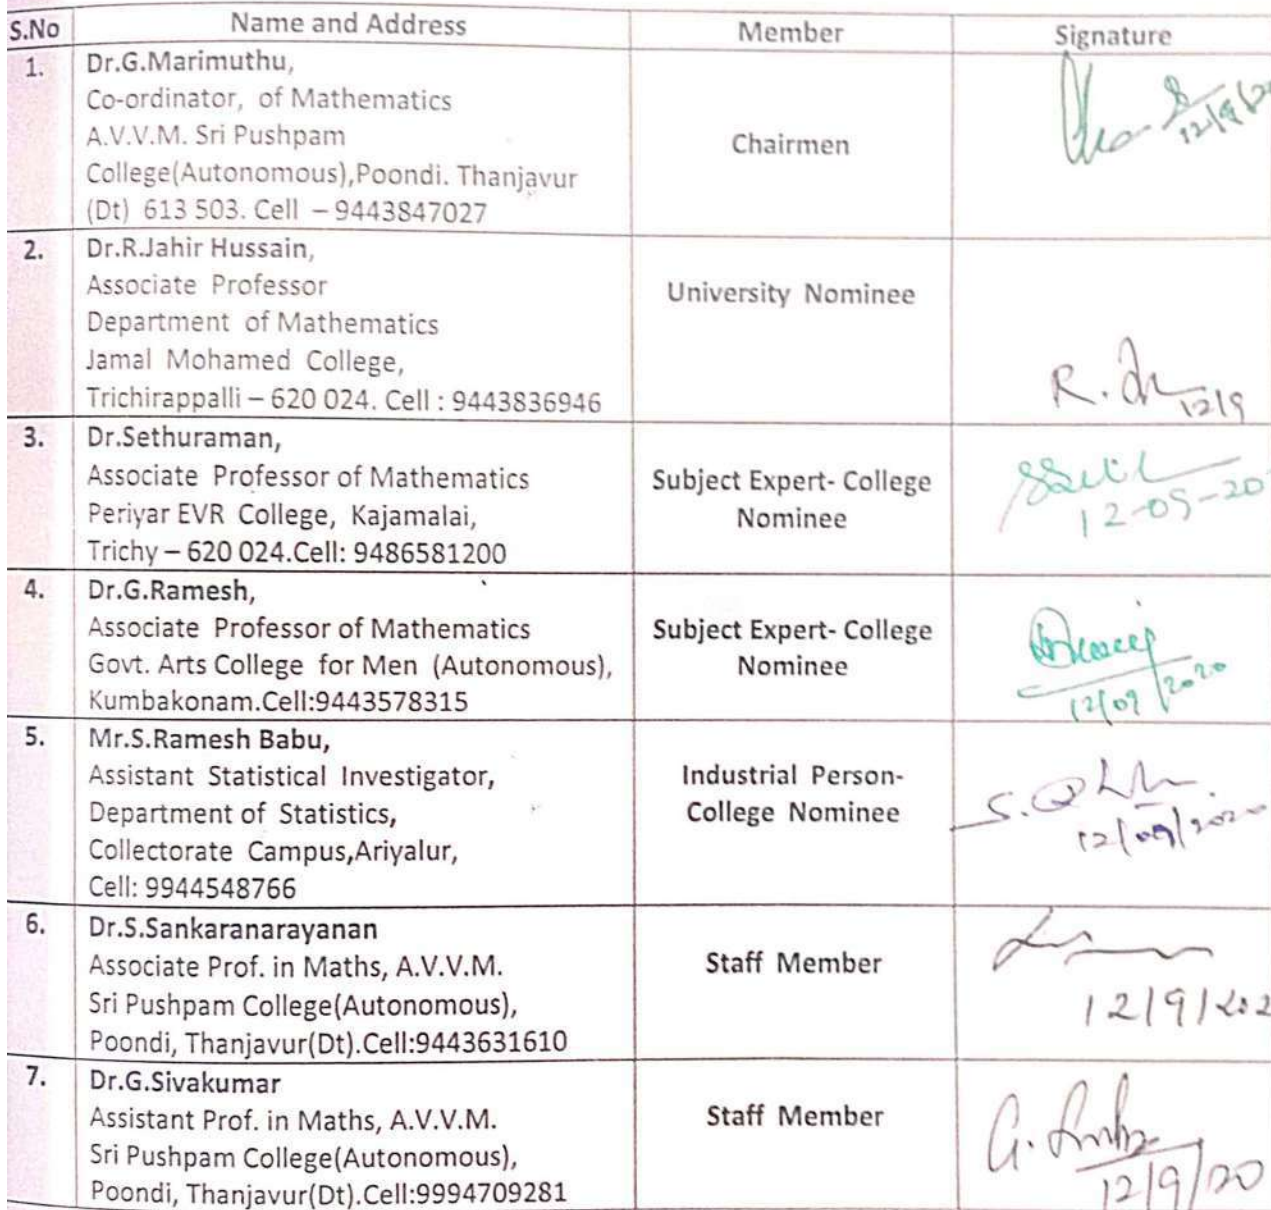 S.No Name and Address Member Signature
1. Dr.G.Marimuthu,
Co-ordinator, of Mathematics
A.V.V.M. Sri Pushpam
College(Autonomous),Poondi. Thanjavur
(Dt) 613 503. Cell – 9443847027
Chairmen
2. Dr.R.Jahir Hussain,
Associate Professor
Department of Mathematics
Jamal Mohamed College,
Trichirappalli – 620 024. Cell : 9443836946
University Nominee
R.
12/9
3. Dr.Sethuraman,
Associate Professor of Mathematics
Periyar EVR College, Kajamalai,
Trichy – 620 024.Cell: 9486581200
Subject Expert- College
Nominee
12-09-20
4. Dr.G.Ramesh,
Associate Professor of Mathematics
Govt. Arts College for Men (Autonomous),
Kumbakonam.Cell:9443578315
Subject Expert- College
Nominee
12/09/2020
5. Mr.S.Ramesh Babu,
Assistant Statistical Investigator,
Department of Statistics,
Collectorate Campus,Ariyalur,
Cell: 9944548766
Industrial Person-
College Nominee
S.
12/09/2020
6. Dr.S.Sankaranarayanan
Associate Prof. in Maths, A.V.V.M.
Sri Pushpam College(Autonomous),
Poondi, Thanjavur(Dt).Cell:9443631610
Staff Member
12/9/202
7. Dr.G.Sivakumar
Assistant Prof. in Maths, A.V.V.M.
Sri Pushpam College(Autonomous),
Poondi, Thanjavur(Dt).Cell:9994709281
Staff Member
G.
12/9/20